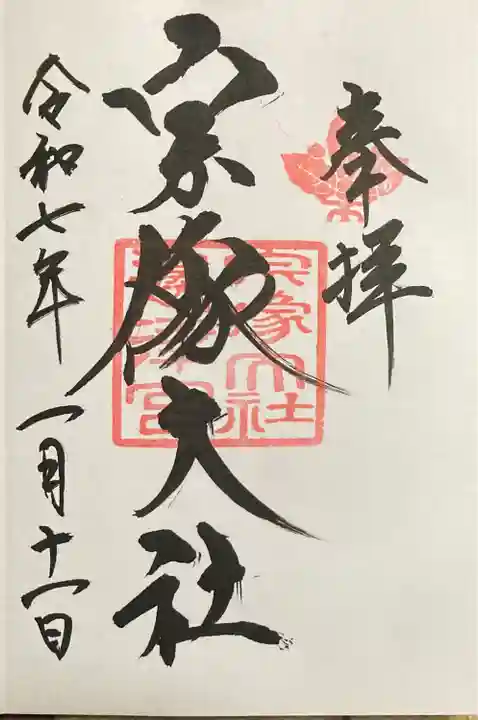 奉拝
宗像大社
宗像大社
邊津宮
令和七年 一月十一日